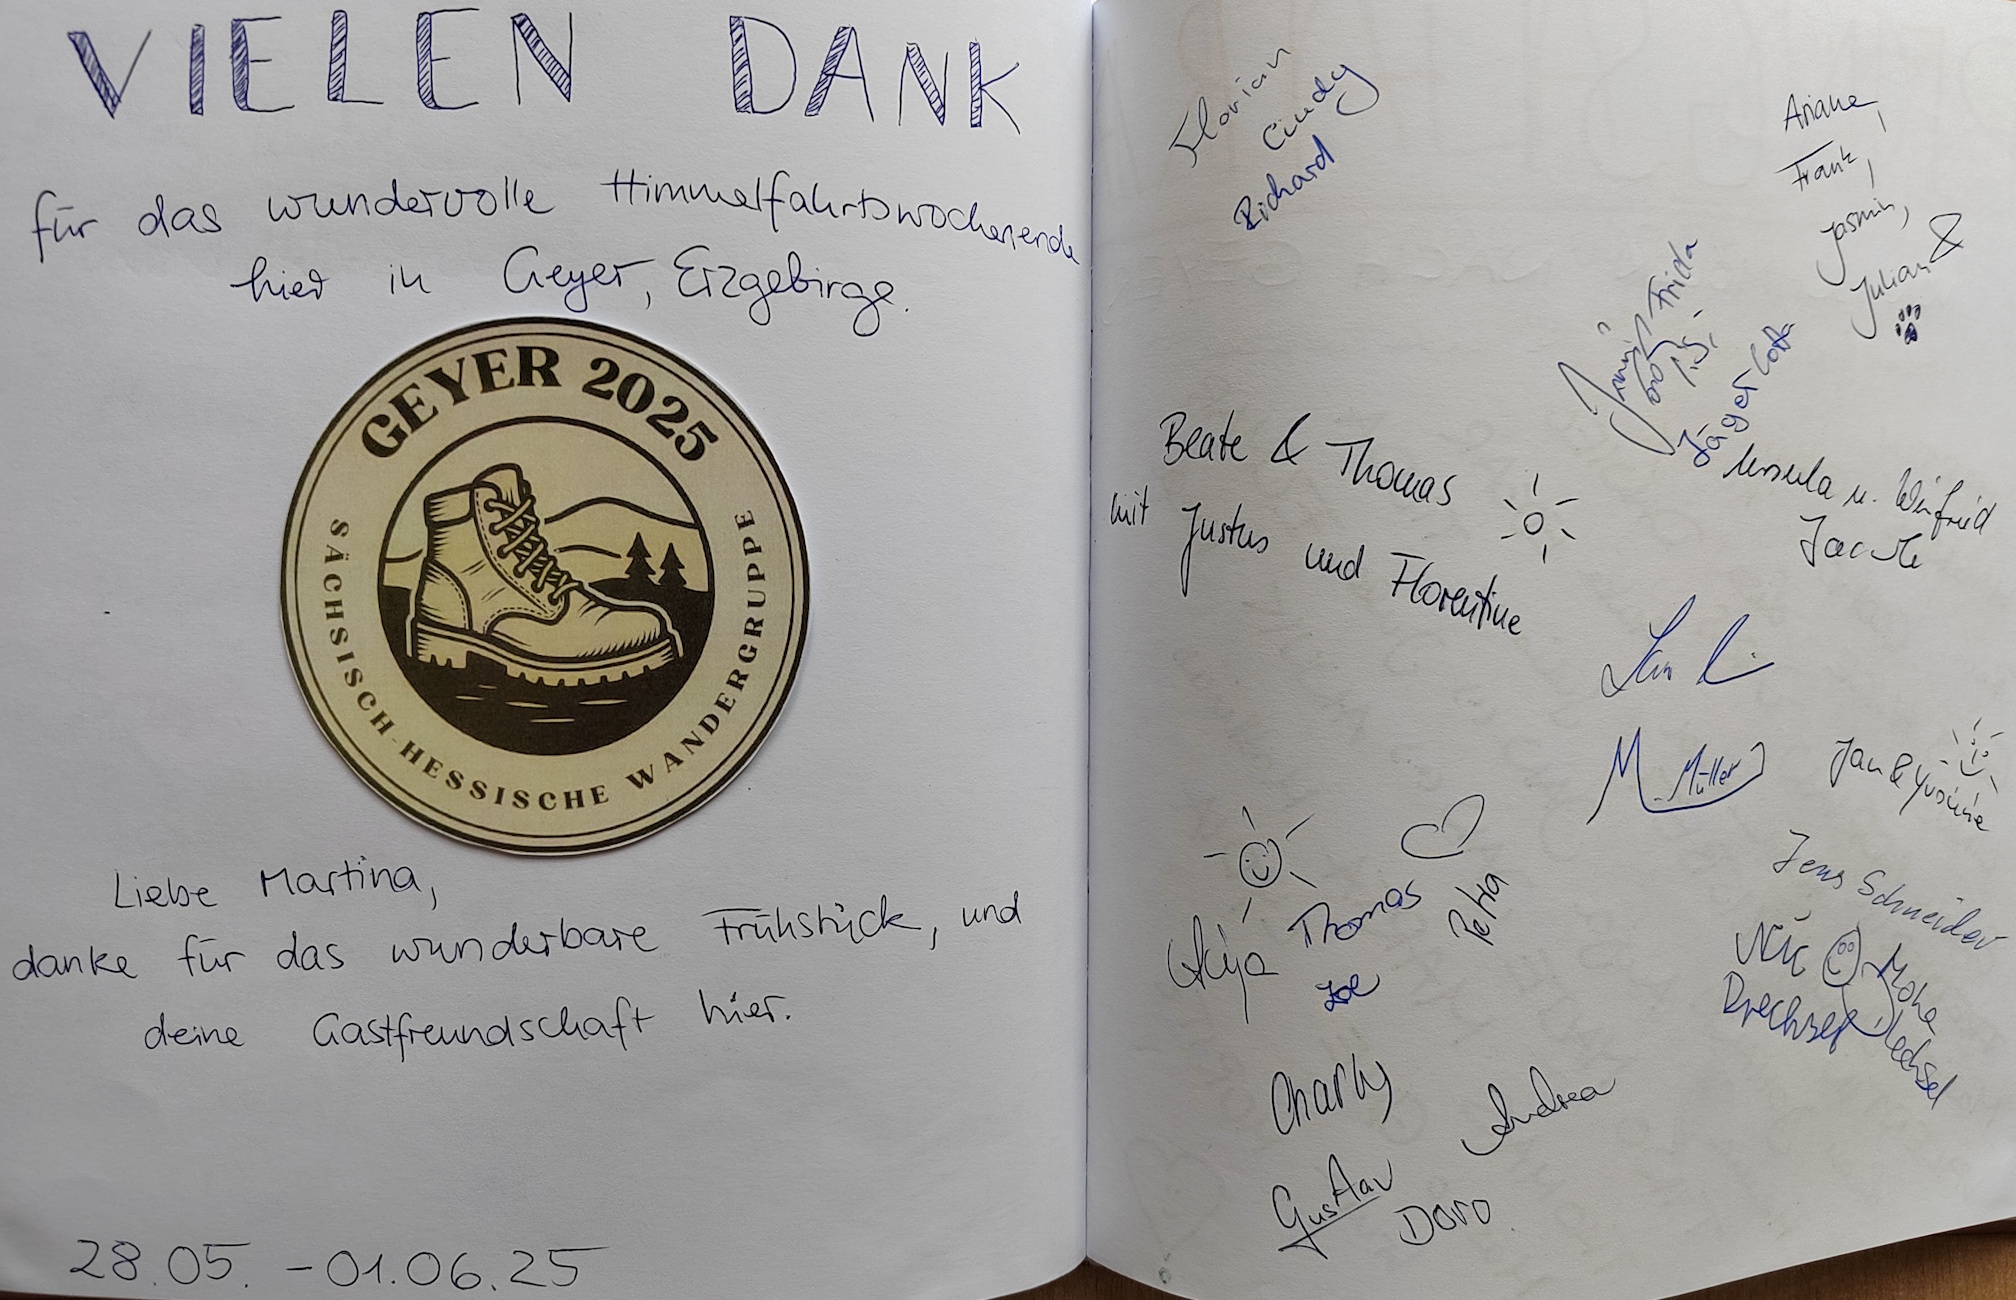 VIELEN DANK
für das wundervolle Himmelfahrtswochenende
hier in Geyer, Erzgebirge.
GEYER 2025
SÄCHSISCH-HESSISCHE WANDERGRUPPE
Liebe Martina,
danke für das wunderbare Frühstück, und
deine Gastfreundschaft hier.
28.05. - 01.06.25
Florian
Cindy
Richard
Ariane,
Frank,
Jasmin,
Julian &
Frida
Jäger Lotta
Beate & Thomas
mit Justus und Florentine
Ursula u. Winfried
M. Müller
Jan & Yvonne
Jens Schneider
Thomas
Petra
Zoe
Nic
Drechsel
Charly
Andrea
Gustav
Doro